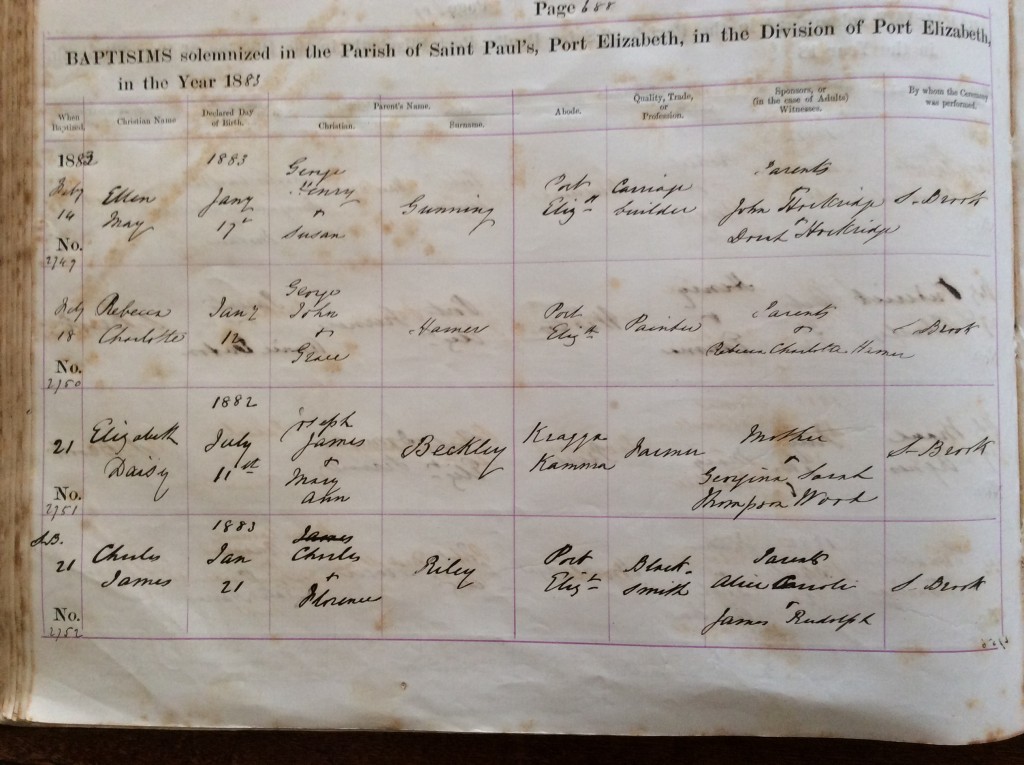 Page 688
BAPTISIMS solemnized in the Parish of Saint Paul's, Port Elizabeth, in the Division of Port Elizabeth,
in the Year 1883
When Baptized.
Christian Name
Declared Day of Birth.
Parent's Name.
Christian.
Surname.
Abode.
Quality, Trade, or Profession.
Sponsors, or (in the case of Adults) Witnesses.
By whom the Ceremony was performed.
1883
Feby
14
No.
2749
Ellen
May
1883
Jany
17th
George
Henry
&
Susan
Gunning
Port
Elizth
Carriage
builder
Parents
John Hockridge
&
Hockridge
S. Brook
Feby
18
No.
2750
Rebecca
Charlotte
Jany
12
George
John
&
Grace
Hamer
Port
Elizth
Painter
Parents
&
Rebecca Charlotte Hamer
S. Brook
21
No.
2751
Elizabeth
Daisy
1882
July
11th
Joseph
James
&
Mary
Ann
Beckley
Kragga
Kamma
Farmer
Mother
&
Georgina Sarah
Thompson Wood
S. Brook
S.B.
21
No.
2752
Charles
James
1883
Jan
21
James
Charles
&
Florence
Riley
Port
Elizth
Black-
smith
Parents
Alice
&
James Rudolph
S. Brook